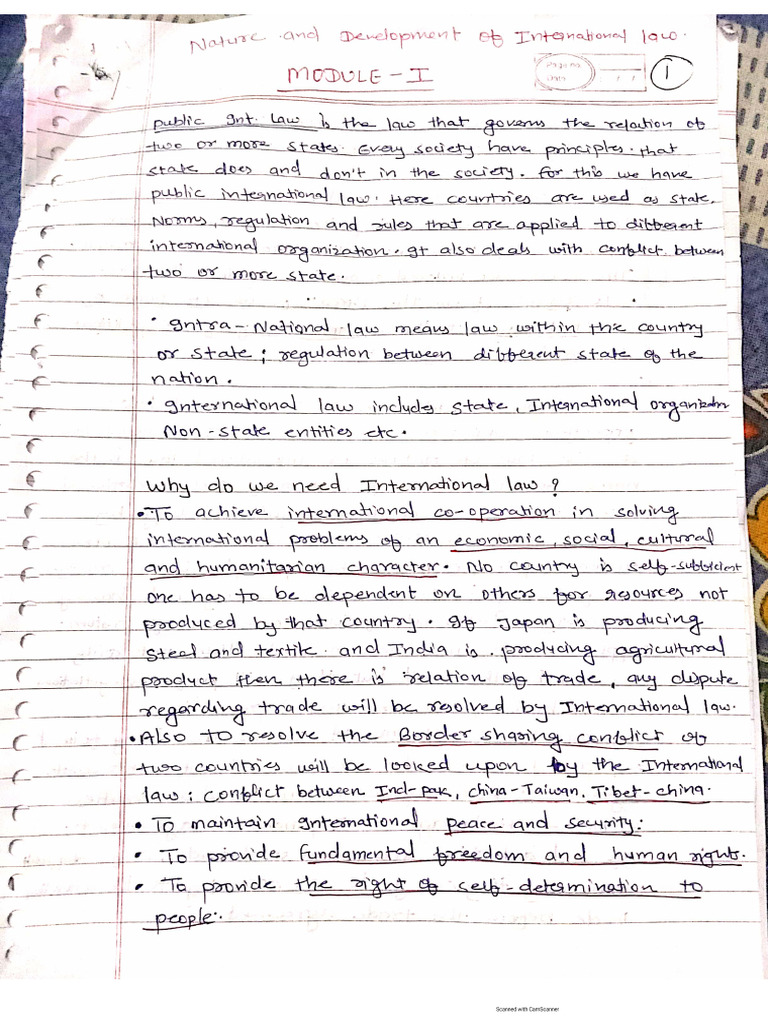 Nature and Development of International law.
MODULE - I
1
public Int. law is the law that governs the relation of
two or more states. Every society have principles. that
state does and don't in the society. for this we have
public international law. Here countries are used as state.
Norms, regulation and rules that are applied to different
international organization. It also deals with conflict between
two or more state.
• Intra - National law means law within the country
or state; regulation between different state of the
nation.
• International law includes state, International organization
Non-state entities etc.
Why do we need International law?
• To achieve international co-operation in solving
international problems of an economic, social, cultural
and humanitarian character. No country is self-sufficient
one has to be dependent on others for resources not
produced by that country. If Japan is producing
steel and textile and India is producing agricultural
product then there is relation of trade, any dispute
regarding trade will be resolved by International law.
• Also to resolve the Border sharing conflict of
two countries will be looked upon by the International
law: conflict between Ind-pak, china-Taiwan, Tibet-china.
• To maintain International peace and security.
• To provide fundamental freedom and human rights.
• To provide the right of self-determination to
people.
Scanned with CamScanner